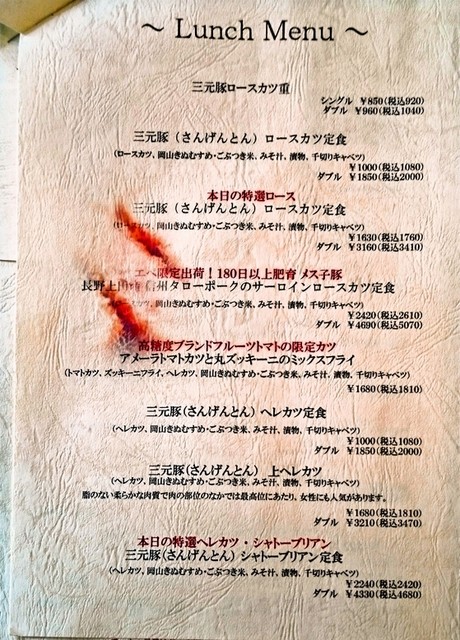 ～ Lunch Menu ～
三元豚ロースカツ重
シングル ￥850(税込920)
ダブル ￥960(税込1040)
三元豚（さんげんとん）ロースカツ定食
(ロースカツ、岡山きぬむすめ・ごぶつき米、みそ汁、漬物、千切りキャベツ)
￥1000(税込1080)
ダブル ￥1850(税込2000)
本日の特選ロース
三元豚（さんげんとん）ロースカツ定食
ースカツ、岡山きぬむすめ・ごぶつき米、みそ汁、漬物、千切りキャベツ)
￥1630(税込1760)
ダブル ￥3160(税込3410)
限定出荷！180日以上肥育 メス子豚
長野上田 州タローポークのサーロインロースカツ定食
スカツ、岡山きぬむすめ・ごぶつき米、みそ汁、漬物、千切りキャベツ)
￥2420(税込2610)
ダブル ￥4690(税込5070)
高糖度ブランドフルーツトマトの限定カツ
アメーラトマトカツと丸ズッキーニのミックスフライ
(トマトカツ、ズッキーニフライ、ヘレカツ、岡山きぬむすめ・ごぶつき米、みそ汁、漬物、千切りキャベツ)
￥1680(税込1810)
三元豚(さんげんとん) ヘレカツ定食
(ヘレカツ、岡山きぬむすめ・ごぶつき米、みそ汁、漬物、千切りキャベツ)
￥1000(税込1080)
ダブル ￥1850(税込2000)
三元豚(さんげんとん) 上ヘレカツ
(ヘレカツ、岡山きぬむすめ・ごぶつき米、みそ汁、漬物、千切りキャベツ)
脂のない柔らかな肉質で肉の部位のなかでは最高位にあたり、女性にも人気があります。
￥1680(税込1810)
ダブル ￥3210(税込3470)
本日の特選ヘレカツ・シャトーブリアン
三元豚(さんげんとん) シャトーブリアン定食
(ヘレカツ、岡山きぬむすめ・ごぶつき米、みそ汁、漬物、千切りキャベツ)
￥2240(税込2420)
ダブル ￥4330(税込4680)